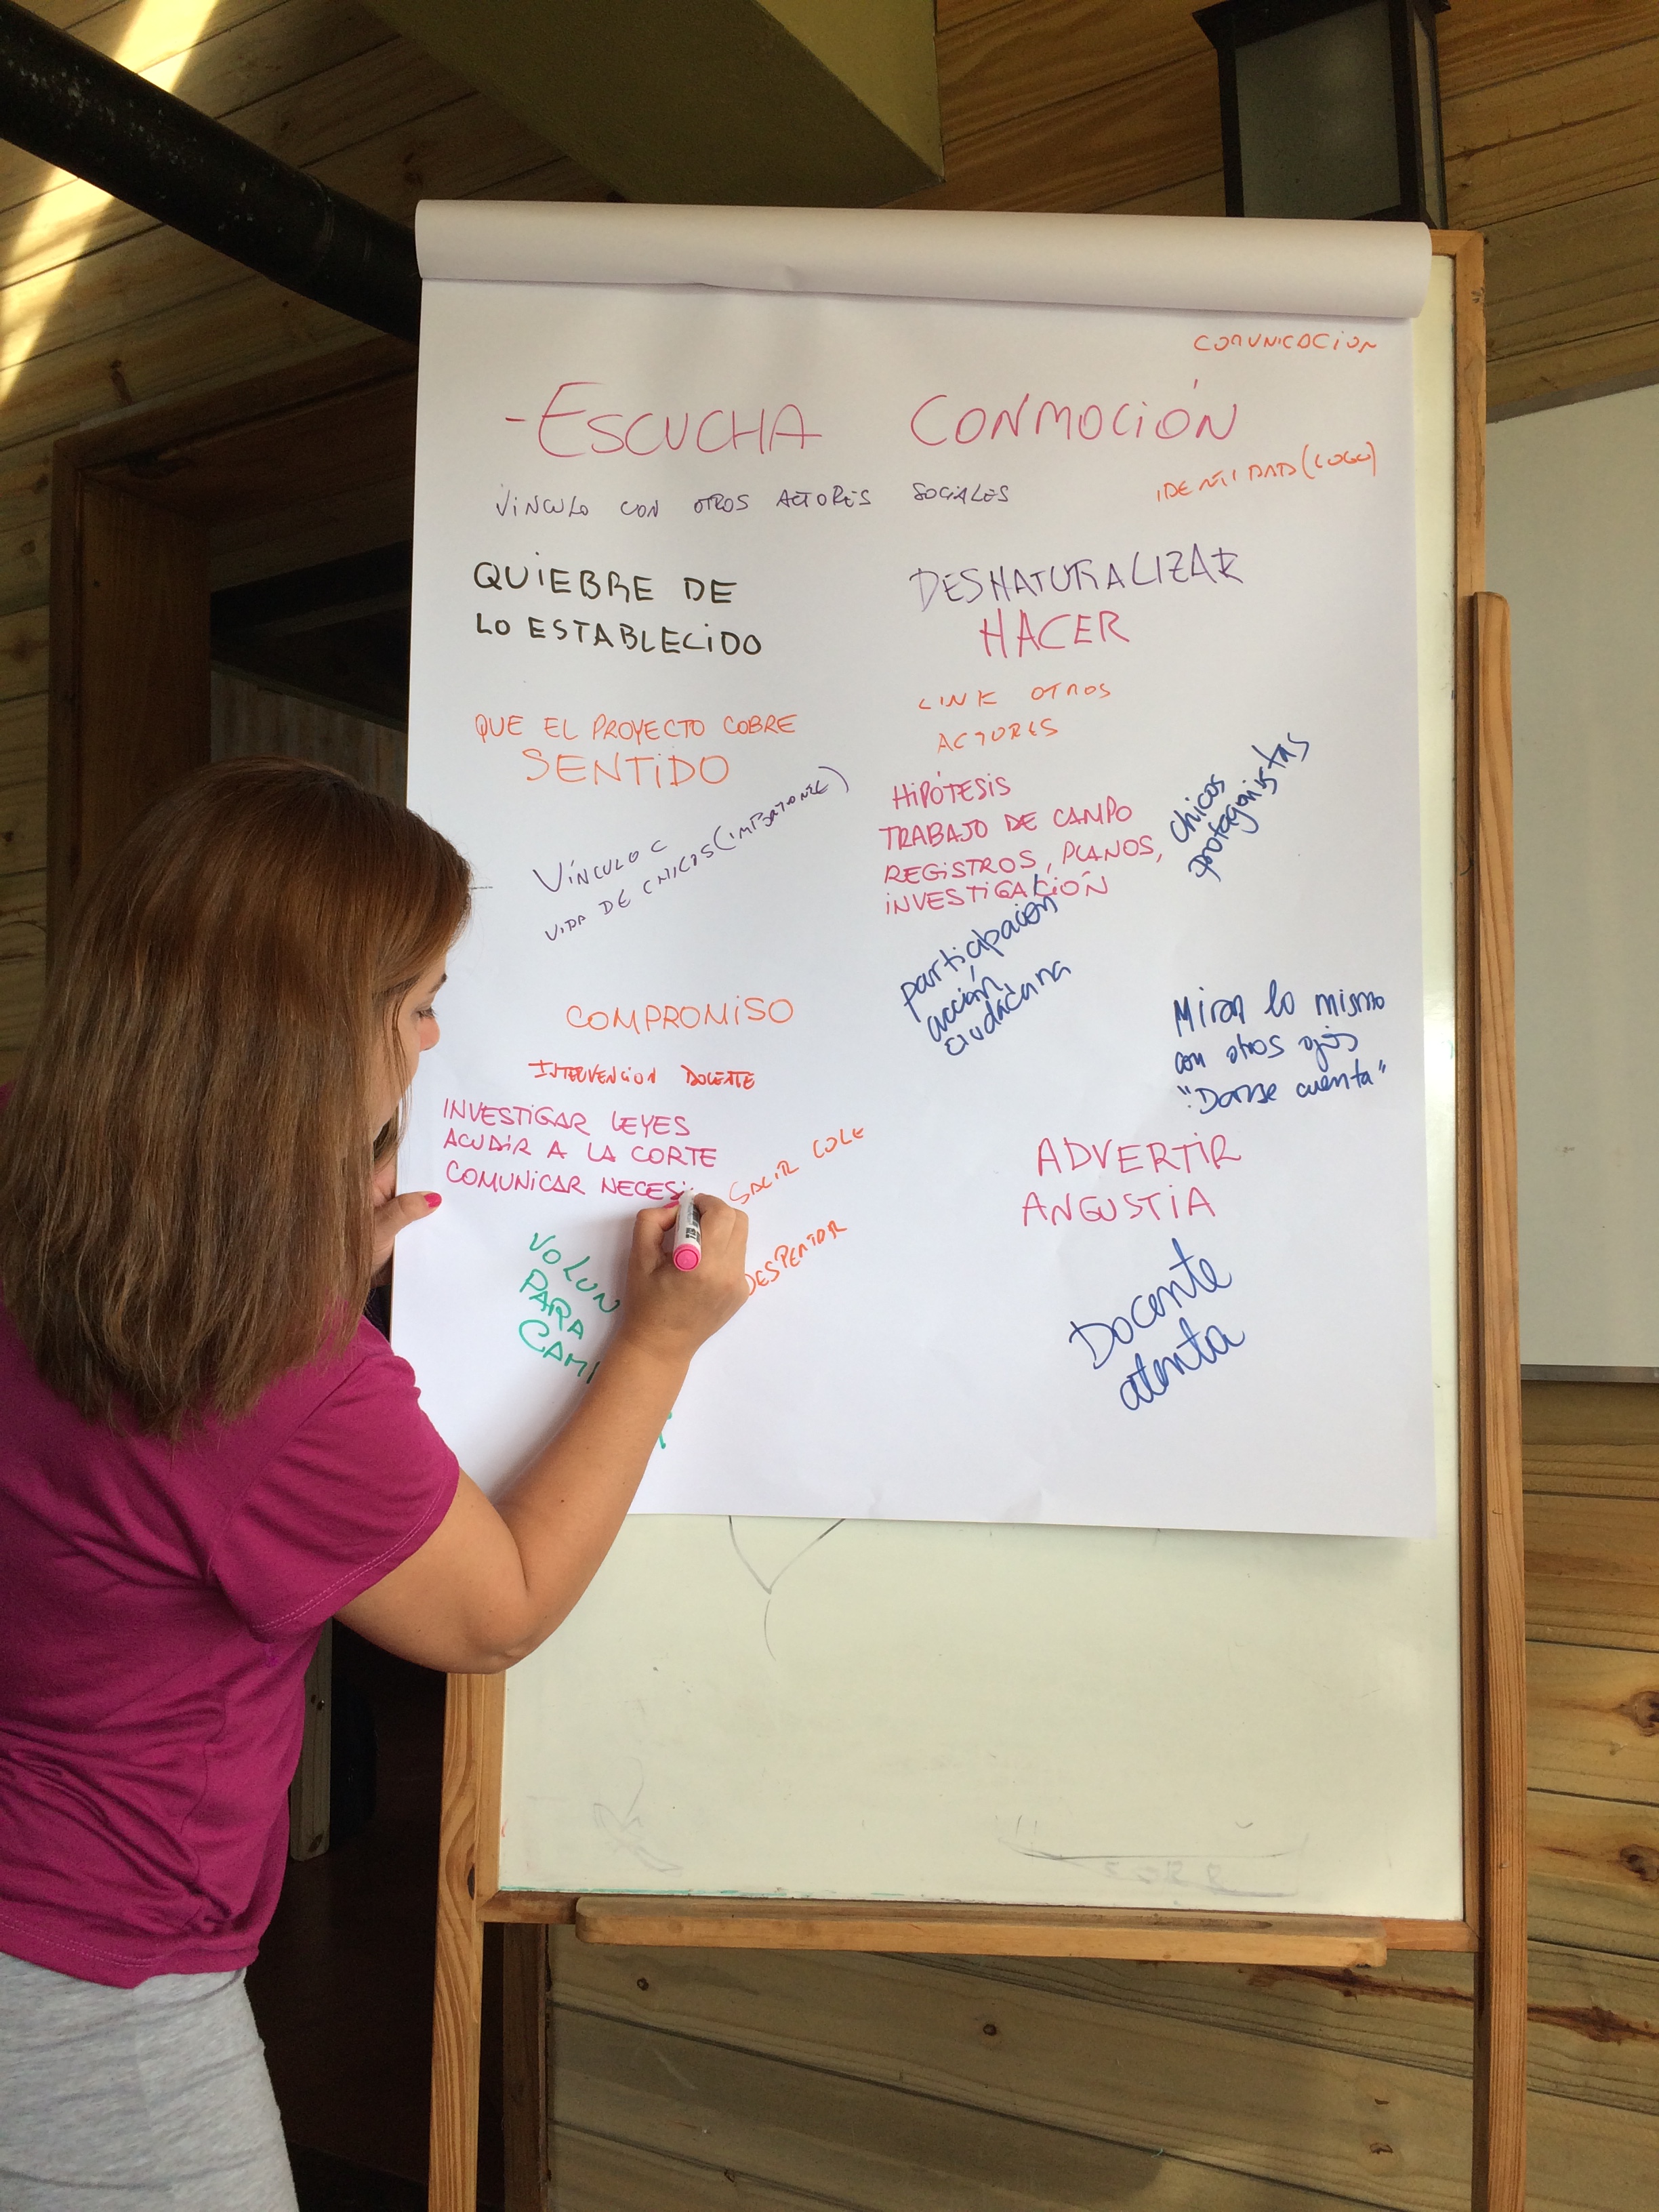 COMUNICACION
-ESCUCHA CONMOCIÓN
IDENTIDAD (LOGO)
VINCULO CON OTROS ACTORES SOCIALES
QUIEBRE DE
LO ESTABLECIDO
DESNATURALIZAR
HACER
LINK OTROS
ACTORES
QUE EL PROYECTO COBRE
SENTIDO
HIPÓTESIS
TRABAJO DE CAMPO
REGISTROS, PLANOS,
INVESTIGACIÓN
chicos
protagonistas
VÍNCULO C
VIDA DE CHICOS (IMPORTANTE)
participación
acción
ciudadana
COMPROMISO
INTERVENCION DOCENTE
Mirar lo mismo
con otros ojos
"Darse cuenta"
INVESTIGAR LEYES
ACUDIR A LA CORTE
COMUNICAR NECESI
SALIR COLE
DESPERTAR
ADVERTIR
ANGUSTIA
VOLUN
PARA
CAMI
Docente
atenta